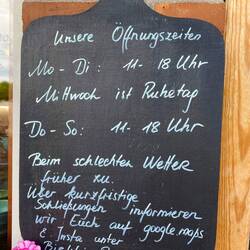 Unsere Öffnungszeiten
Mo - Di : 11 - 18 Uhr
Mittwoch ist Ruhetag
Do - So : 11 - 18 Uhr
Beim schlechten Wetter
früher zu.
Über kurzfristige
Schließungen informieren
wir Euch auf google maps
& Insta unter